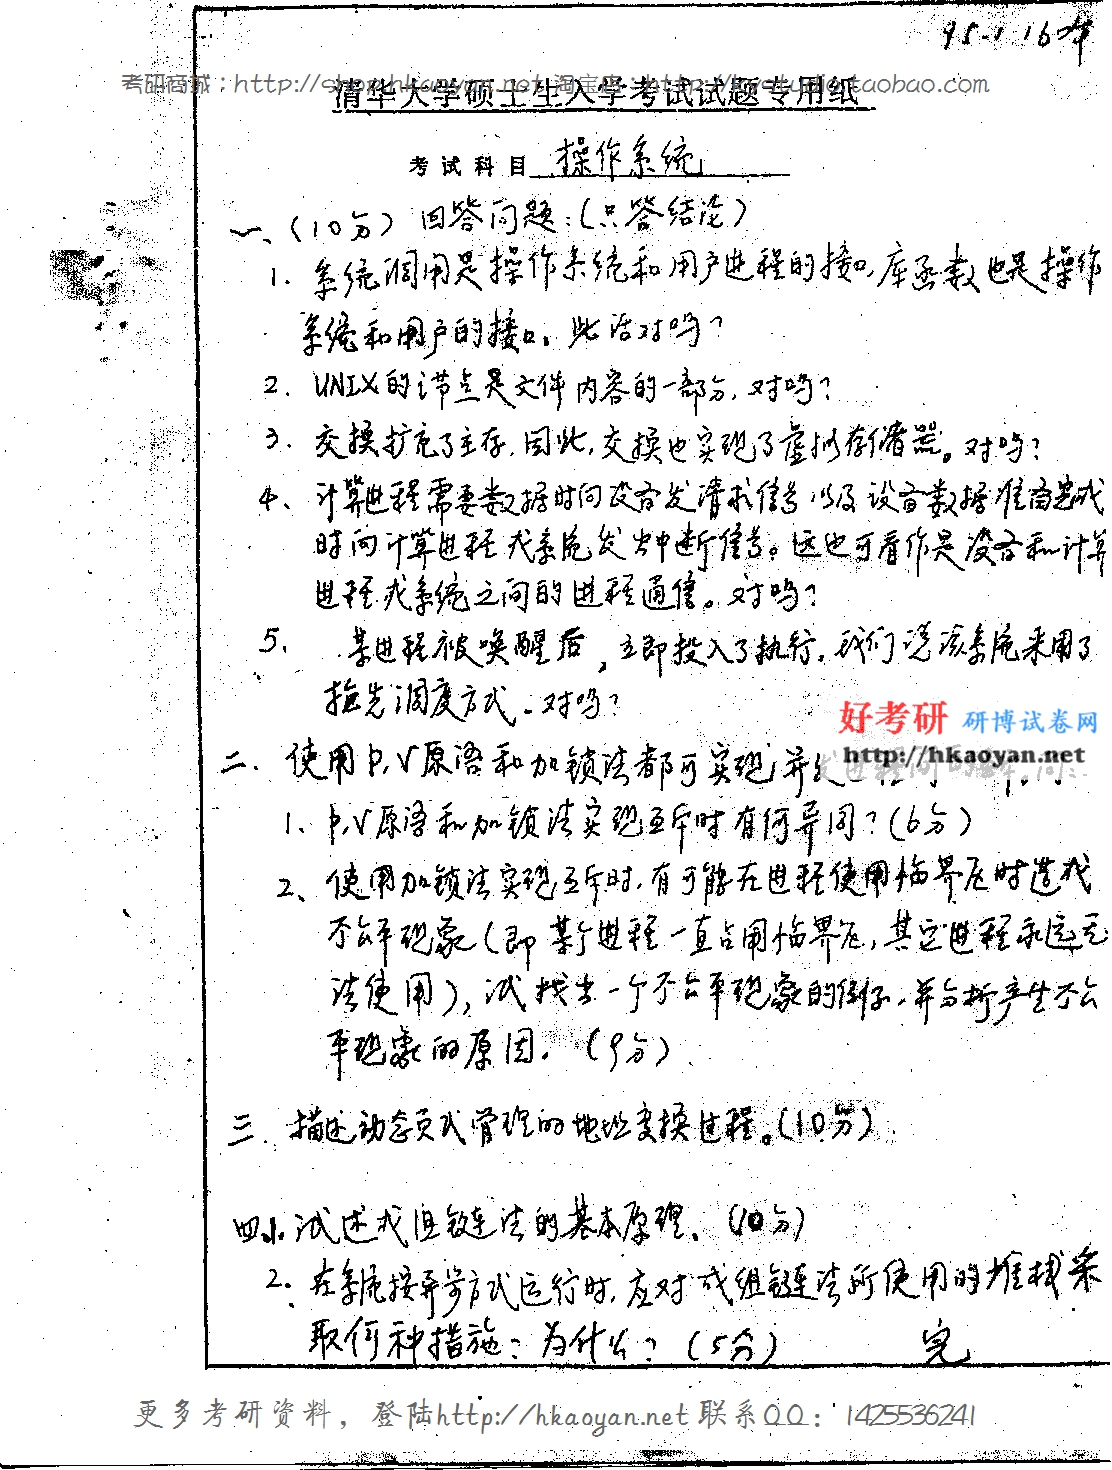 95.1.16
考研商城：http://shop.hkaoyan.net 淘宝
taobao.com
清华大学硕士生入学考试试题专用纸
考试科目 操作系统
一、(10分) 回答问题：(只答结论)
1. 系统调用是操作系统和用户进程的接口，库函数也是操作
系统和用户的接口。此话对吗？
2. UNIX的i节点是文件内容的一部分，对吗？
3. 交换扩充了主存，因此，交换也实现了虚拟存储器。对吗？
4. 计算进程需要数据时向设备发请求信号以及设备数据准备完成
时向计算进程或系统发出中断信号。这也可看作是设备和计算
进程或系统之间的进程通信。对吗？
5. 某进程被唤醒后，立即投入了执行，我们说该系统采用了
抢先调度方式。对吗？
好考研 研博试卷网
http://hkaoyan.net
二. 使用P,V原语和加锁法都可实现并发
1、P,V原语和加锁法实现互斥时有何异同？(6分)
2、使用加锁法实现互斥时，有可能在进程使用临界区时造成
不公平现象(即某个进程一直占用临界区，其它进程永远无
法使用)，试找出一个不公平现象的例子，并分析产生不公
平现象的原因。(9分)
三. 描述动态页式管理的地址变换过程。(10分)
四.1. 试述成组链法的基本原理。(10分)
2. 在系统按异步方式运行时，应对成组链法所使用的堆栈采
取何种措施？为什么？(5分) 完
更多考研资料，登陆http://hkaoyan.net 联系QQ：1425536241